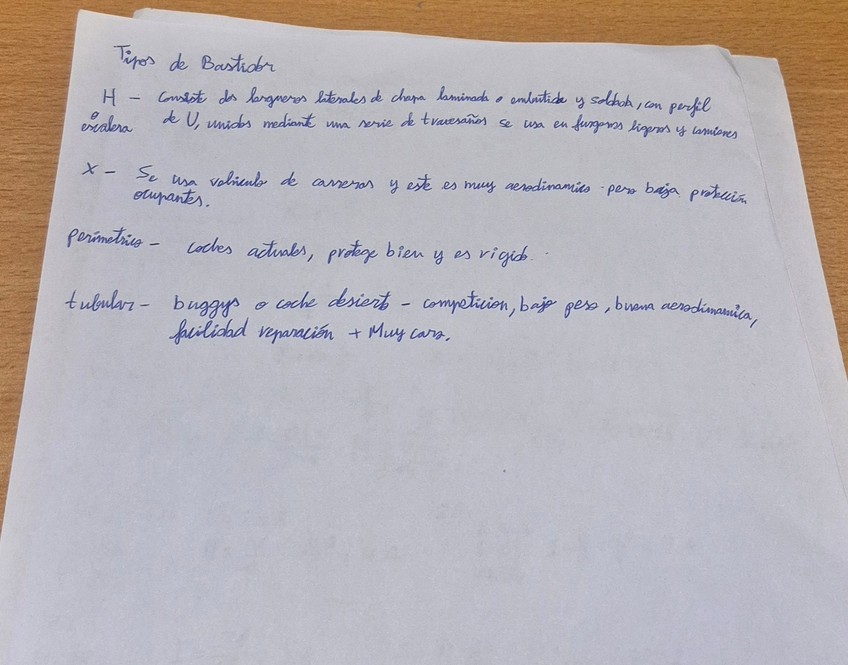 Tipos de Bastidor
H - Consist dos largueros laterales de chapa laminada o embutida y soldada, con perfil
o
escalera de U, unidos mediante una serie de travesaños se usa en furgones ligeros y camiones
X - Se usa vehiculo de carreras y este es muy aerodinamico - pero baja protección
ocupantes.
perimetrico - coches actuales, protege bien y es rigido.
tubular - buggys o coche desierto - competicion, bajo peso, buena aerodinamica,
facilidad reparación + Muy caro.